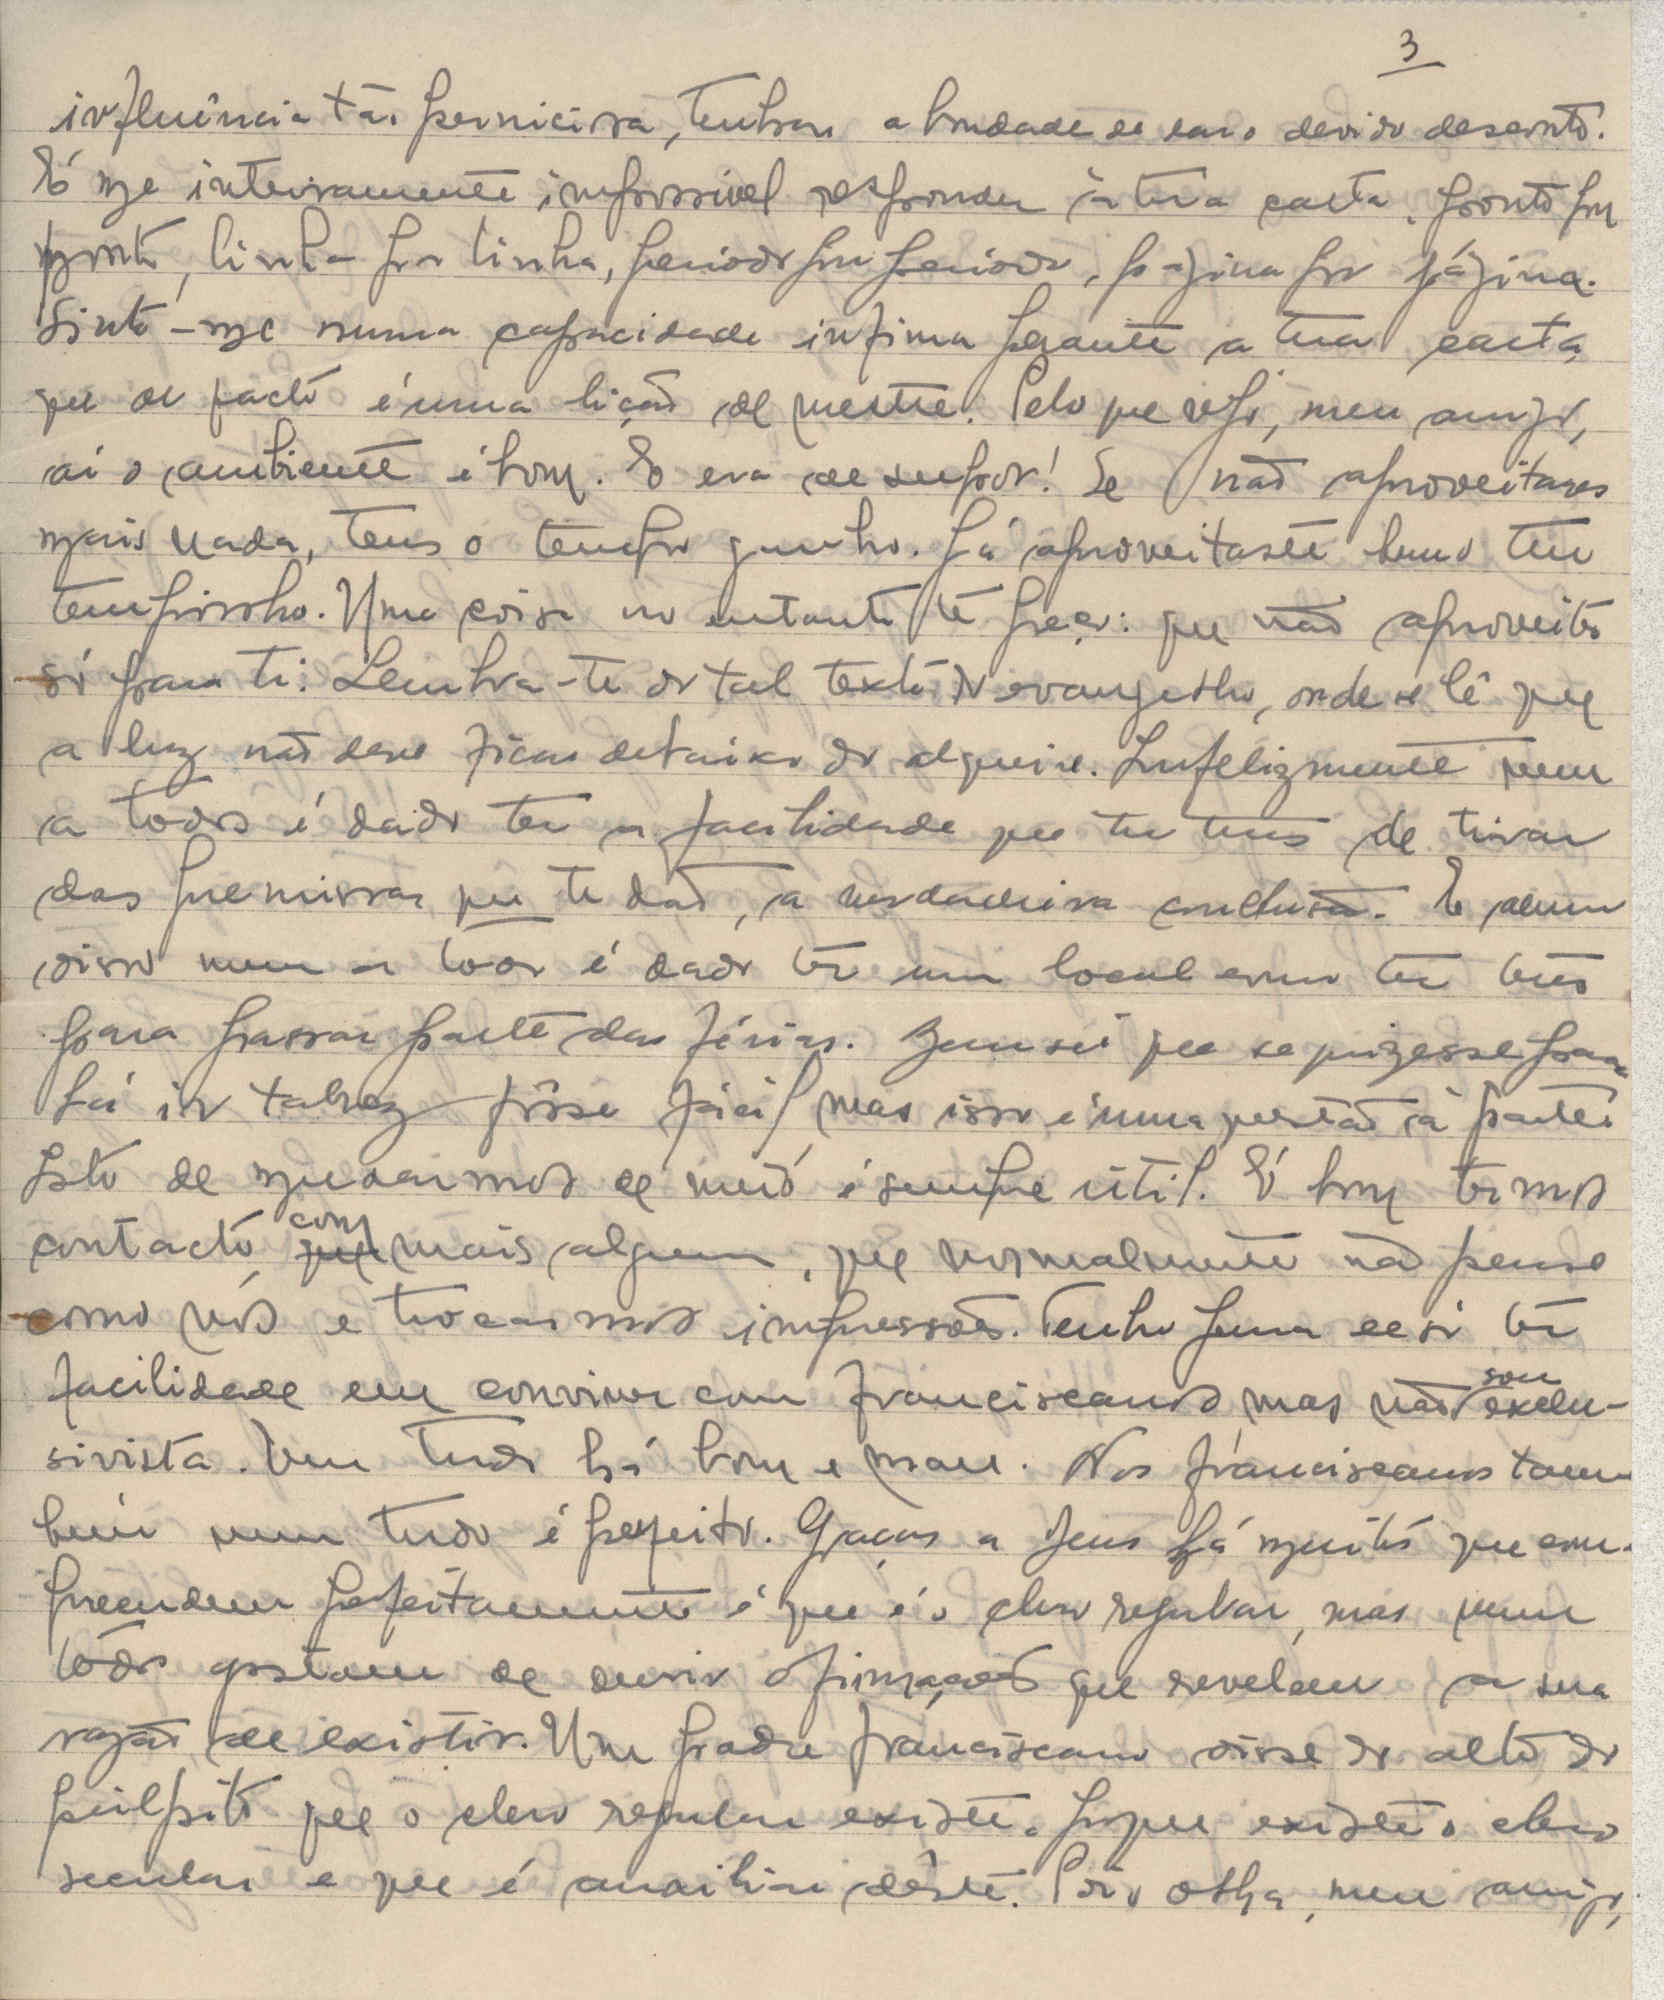 3
influência tão perniciosa, tenham a bondade de dar o devido desconto.
É-me inteiramente impossivel responder à tua carta, ponto por
ponto, linha por linha, periodo por periodo, página por página.
Sinto-me numa capacidade infima perante a tua carta
que de facto é uma lição de mestre. Pelo que vejo, meu amigo,
aí o ambiente é bom. E era de supor! Se não aproveitares
mais nada, tens o tempo ganho. Já aproveitaste bem o teu
tempinho. Uma coisa no entanto te peço: que não aproveites
só para ti. Lembra-te do tal texto do evangelho, onde se lê que
a luz não deve ficar debaixo do alqueire. Infelizmente nem
a todos é dado ter a facilidade que tu tens de tirar
das premissas que te dão, a verdadeira conclusão. E alem
disso nem a todos é dado ter um local como tu tens
para passar parte das férias. Bem sei que se quizesse para
lá ir talvez fôsse fácil mas isso é uma questão à parte.
Isto de mudarmos de meio é sempre útil. É bom termos
contacto com mais alguem, que normalmente não pense
como nós e trocarmos impressões. Tenho pena de só ter
facilidade em conviver com franciscanos mas não sou exclu-
sivista. Em tudo há bom e mau. Nos franciscanos tam-
bém nem tudo é perfeito. Graças a Deus há muitos que com-
preendem perfeitamente é que é o clero regular, mas nem
todos gostam de ouvir afirmações que revelem a sua
razão de existir. Um padre franciscano disse do alto do
púlpito que o clero regular existe, porque existe o clero
secular e que é auxiliar dêste. Pois olha, meu amigo,